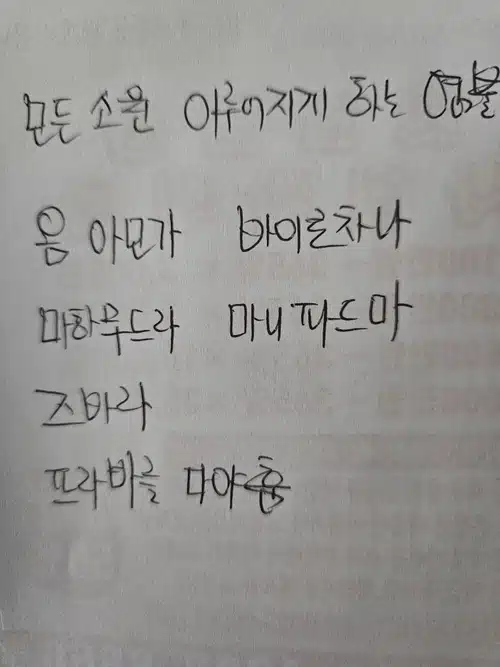 모든 소원 이루어지게 하는 염불
옴 아모가 바이로차나
마하무드라 마니파드마
즈바라
프라바를 다야훔